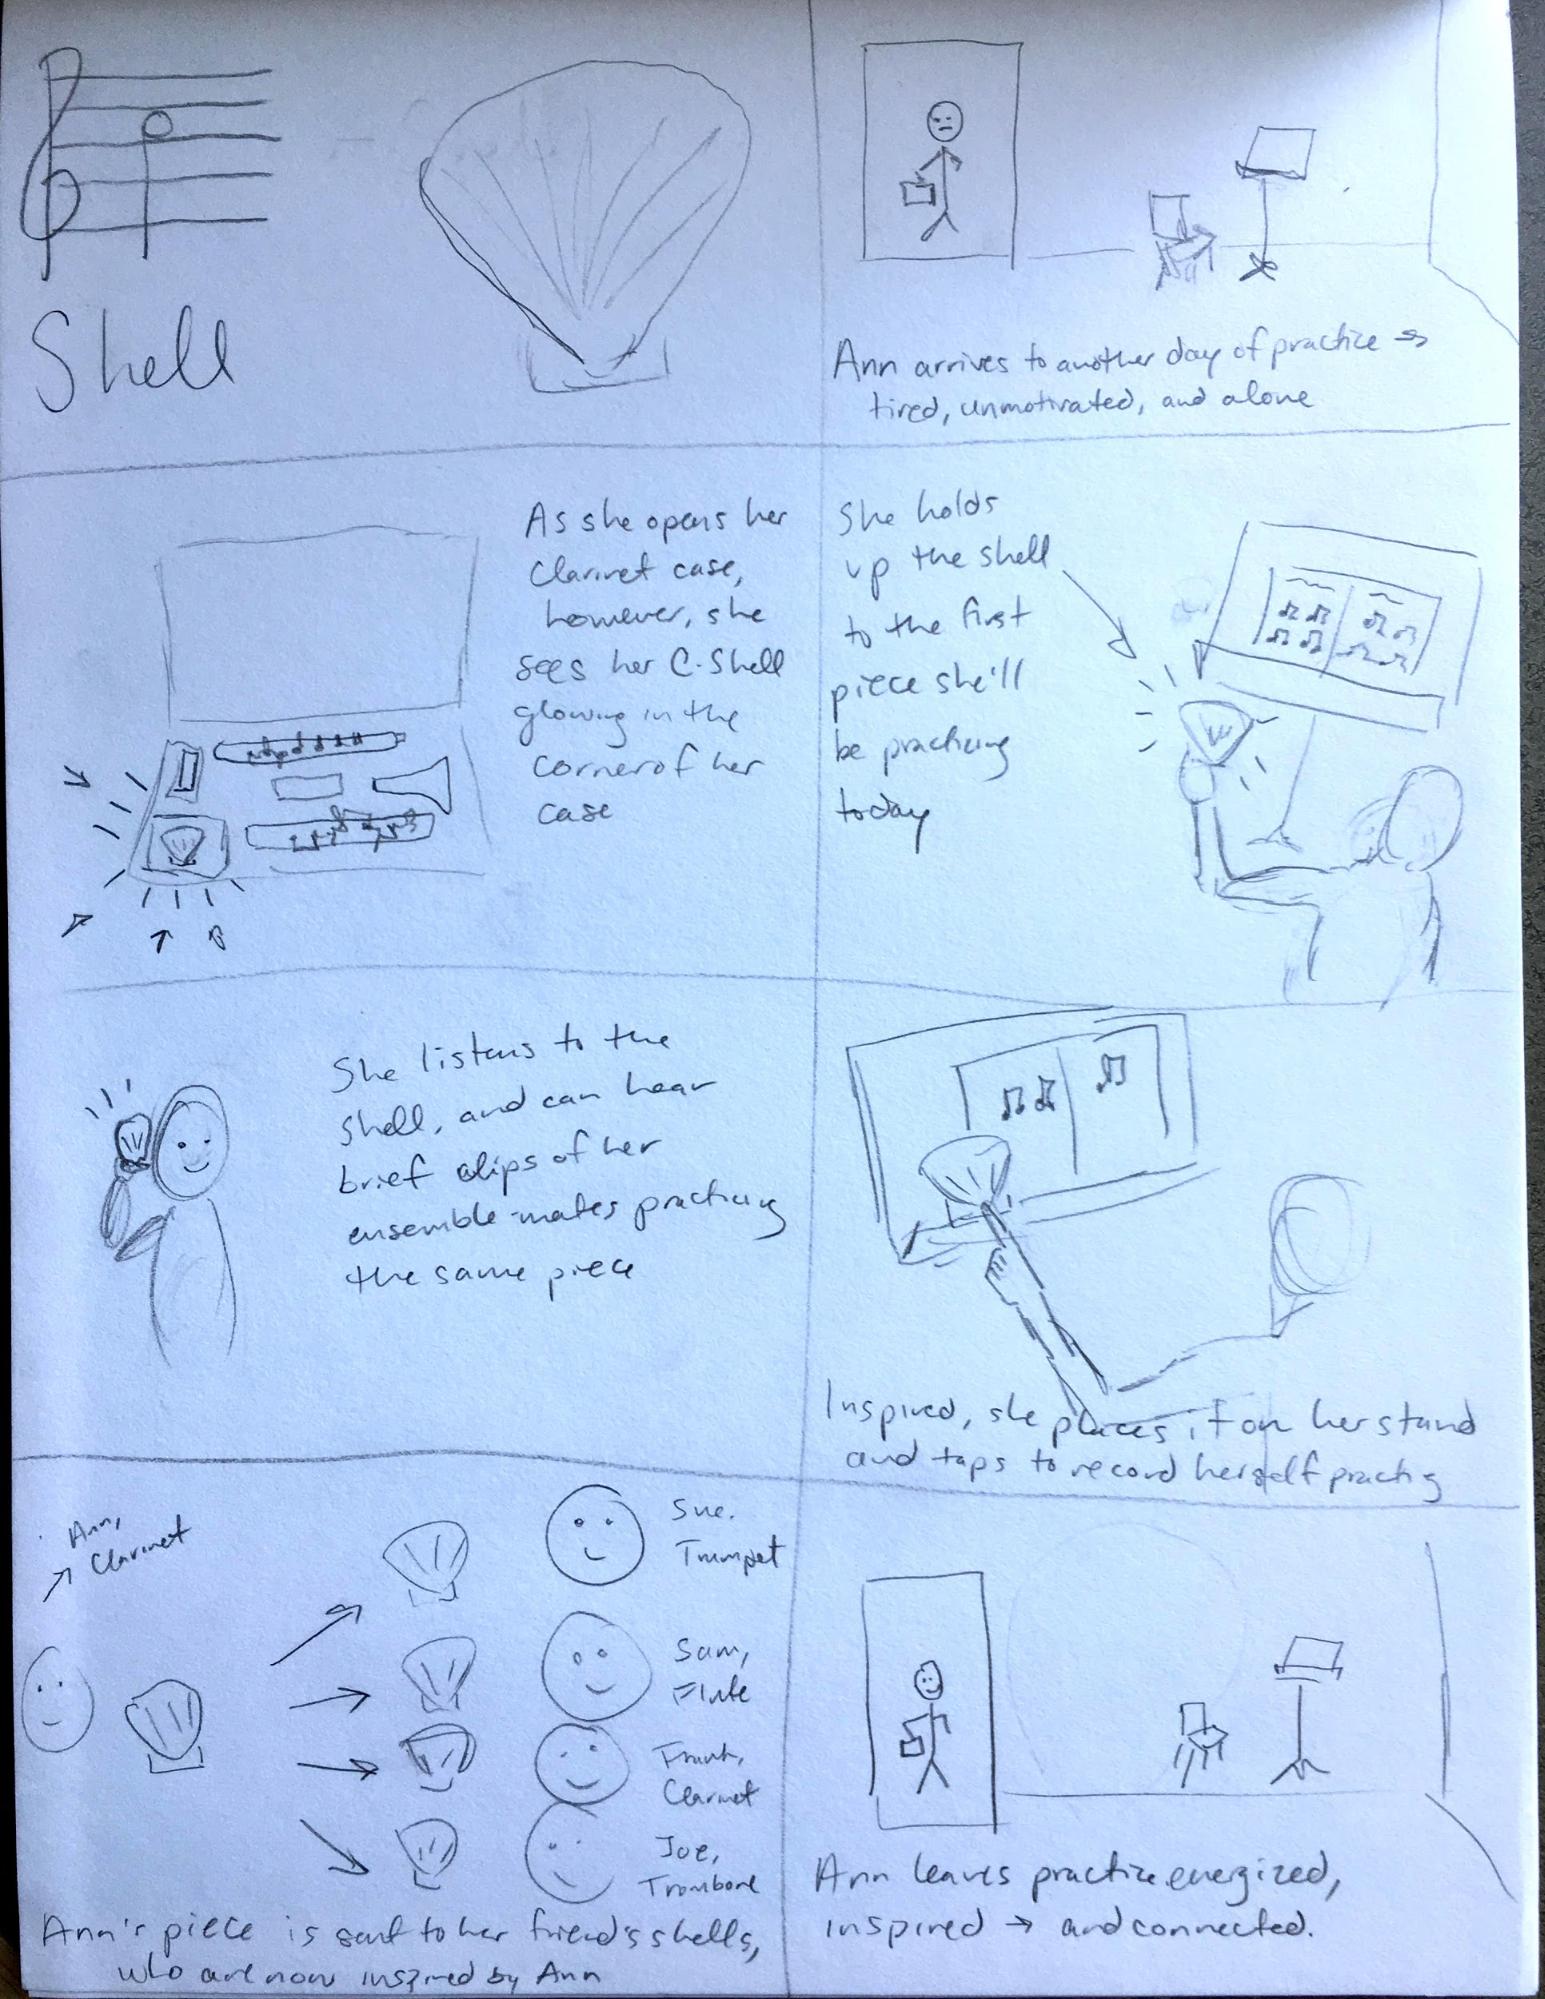 Shell
Ann arrives to another day of practice →
tired, unmotivated, and alone
As she opens her
Clarinet case,
however, she
sees her C-Shell
glowing in the
corner of her
case
She holds
up the shell
to the first
piece she'll
be practicing
today
She listens to the
shell, and can hear
brief clips of her
ensemble-mates practicing
the same piece
Inspired, she places it on her stand
and taps to record herself practig
Ann,
Clarinet
Sue.
Trumpet
Sam,
Flute
Frank,
Clarinet
Joe,
Trombone
Ann's piece is sent to her friend's shells,
who are now inspired by Ann
Ann leaves practice energized,
inspired → and connected.